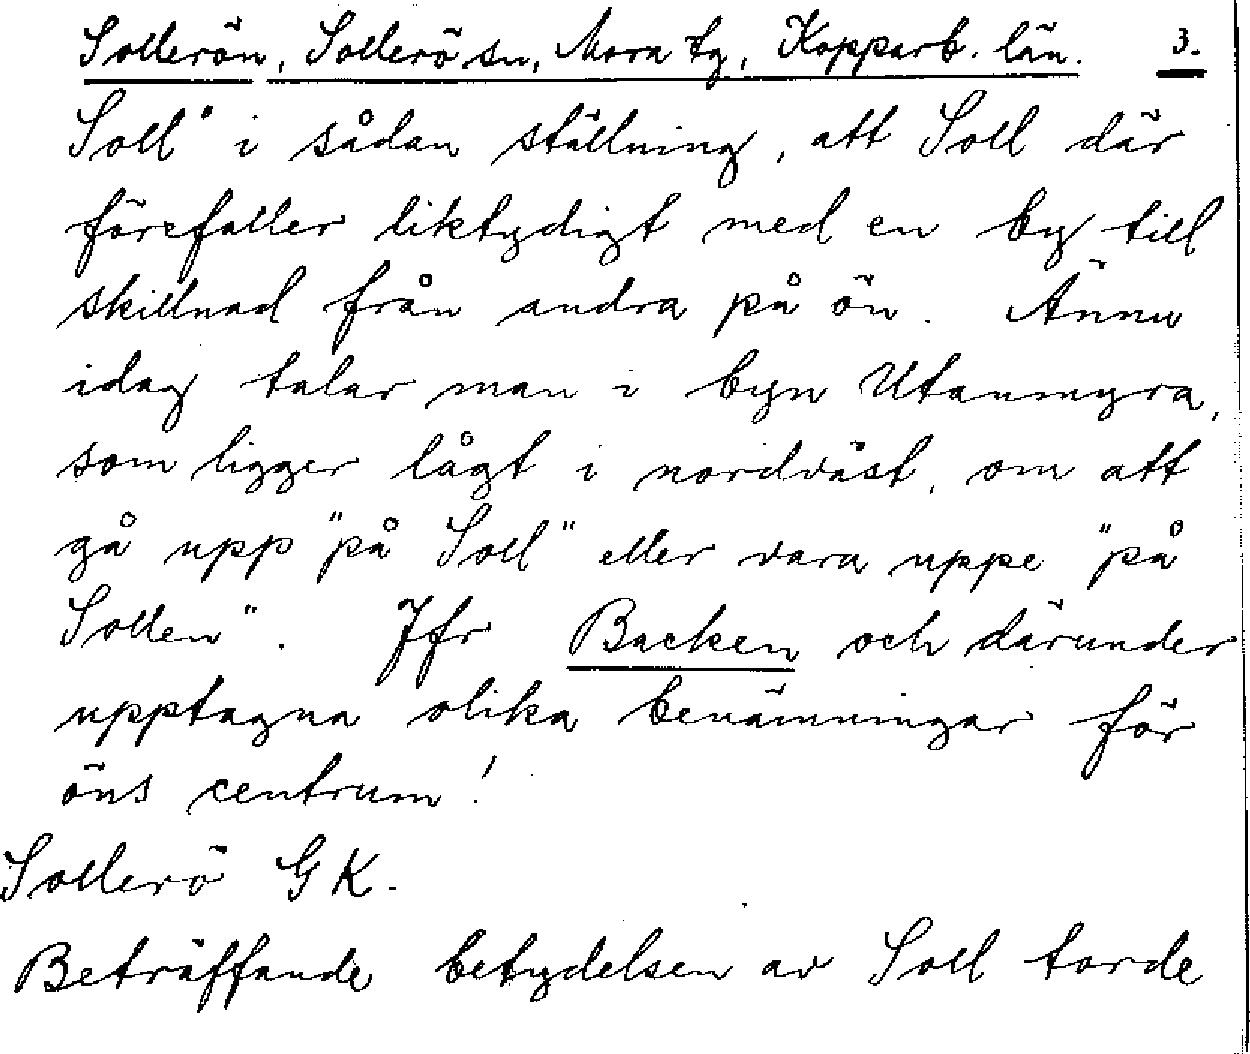 Sollerön, Sollerö sn, Mora tg, Kopparb. län. 3.
Soll" i sådan ställning, att Soll där
förefaller liktydigt med en by till
skillnad från andra på ön. Ännu
idag talar man i byn Utanmyra,
som ligger lågt i nordväst, om att
gå upp "på Soll" eller vara uppe "på
Sollen". Jfr Backen och därunder
upptagna olika benämningar för
öns centrum!
Sollerö GK.
Beträffande betydelsen av Soll torde